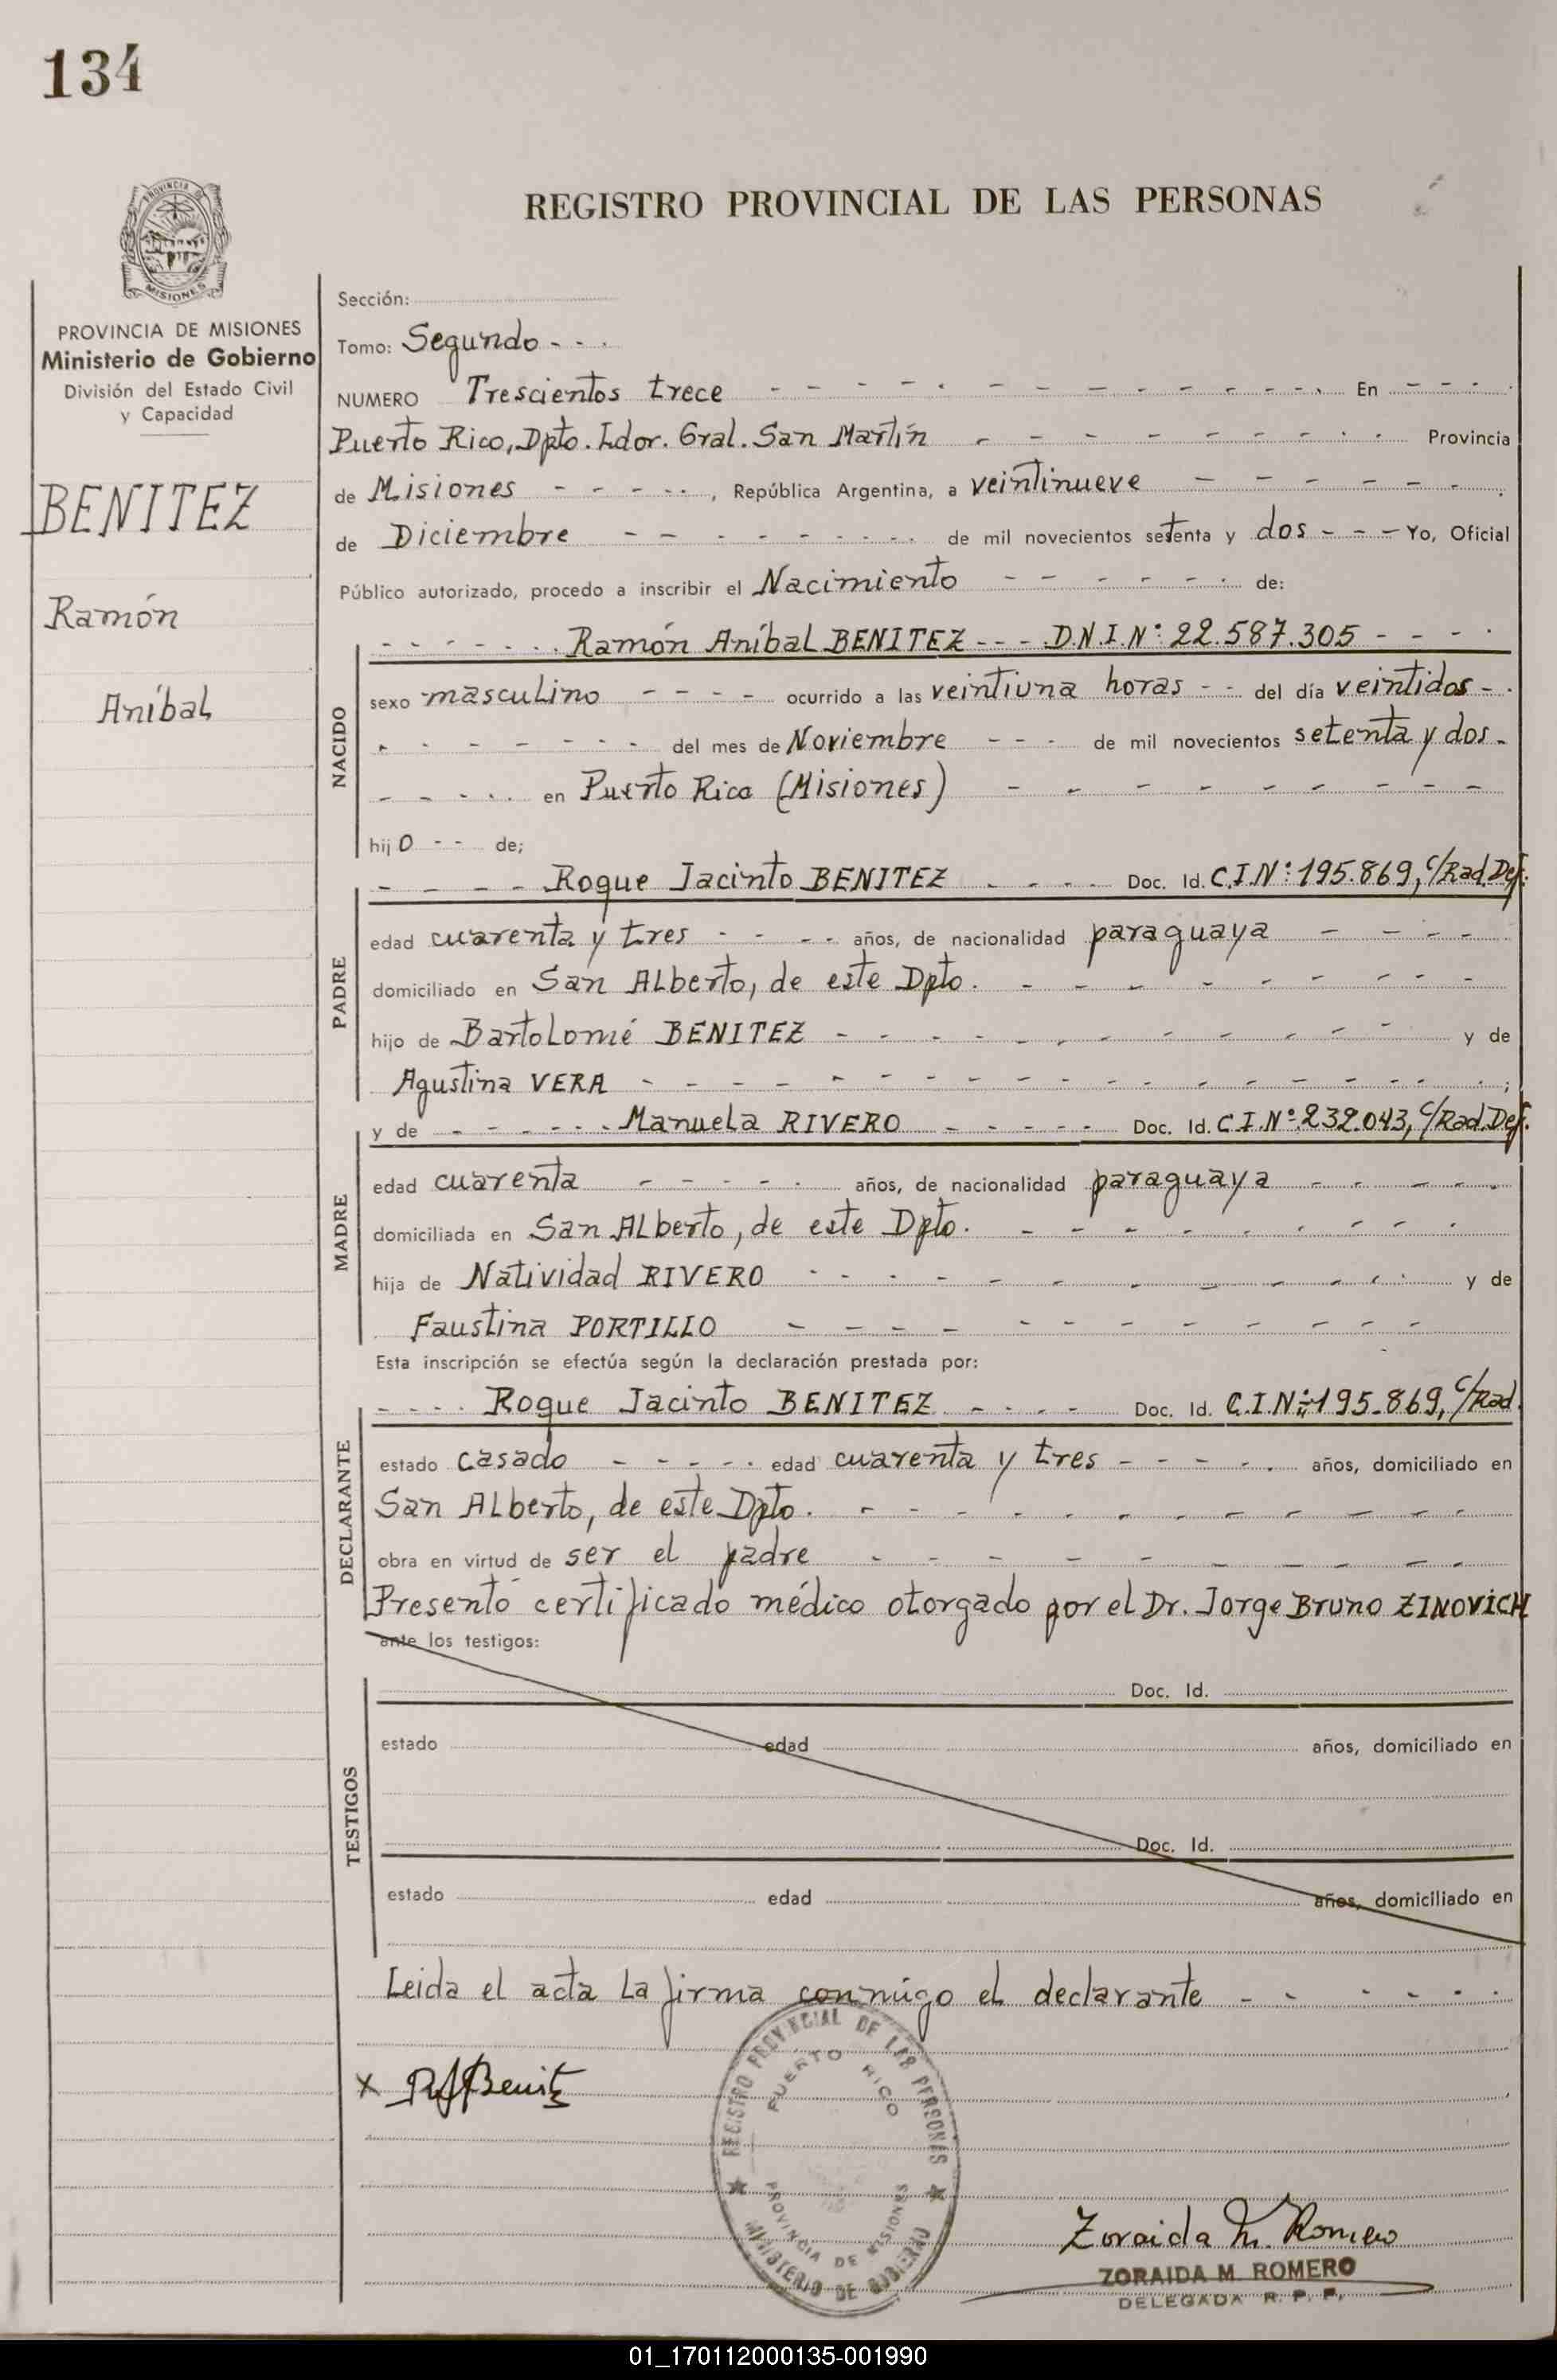 134
REGISTRO PROVINCIAL DE LAS PERSONAS
PROVINCIA
MISIONES
PROVINCIA DE MISIONES
Ministerio de Gobierno
División del Estado Civil
y Capacidad
BENITEZ
Ramón
Aníbal
Sección:
Tomo: Segundo - - -
NUMERO Trescientos trece - - - - - - - - - - En - - -
Puerto Rico, Dpto. Ldor. Gral. San Martín - - - - - - - Provincia
de Misiones - - - - -, República Argentina, a veintinueve - - - - - -
de Diciembre - - - - - - - de mil novecientos setenta y dos - - - Yo, Oficial
Público autorizado, procedo a inscribir el Nacimiento - - - - - - de:
NACIDO
- - - - - - Ramón Aníbal BENITEZ - - - D.N.I. Nº 22.587.305 - - - -
sexo masculino - - - - ocurrido a las veintiuna horas - - del día veintidos - -
- - - - - - - del mes de Noviembre - - - de mil novecientos setenta y dos -
- - - - - en Puerto Rico (Misiones) - - - - - - - - -
hijo - - de;
PADRE
- - - - Roque Jacinto BENITEZ - - - - Doc. Id. C.I.Nº 195.869, c/Rad. Def.
edad cuarenta y tres - - - - años, de nacionalidad paraguaya - - - -
domiciliado en San Alberto, de este Dpto. - - - - - - - -
hijo de Bartolomé BENITEZ - - - - - - - - - - y de
Agustina VERA - - - - - - - - - - - - - - - - ;
MADRE
y de - - - - - - Manuela RIVERO - - - - - Doc. Id. C.I.Nº 232.043, c/Rad. Def.
edad cuarenta - - - - - años, de nacionalidad paraguaya - - - - -
domiciliada en San Alberto, de este Dpto. - - - - - - - - -
hija de Natividad RIVERO - - - - - - - - - - y de
Faustina PORTILLO - - - - - - - - - - - -
Esta inscripción se efectúa según la declaración prestada por:
DECLARANTE
- - - - Roque Jacinto BENITEZ - - - - Doc. Id. C.I.Nº 195.869, c/Rad.
estado casado - - - - - edad cuarenta y tres - - - - - años, domiciliado en
San Alberto, de este Dpto. - - - - - - - - - -
obra en virtud de ser el padre - - - - - - - - -
Presentó certificado médico otorgado por el Dr. Jorge Bruno ZINOVICH
ante los testigos:
TESTIGOS
Doc. Id.
estado edad años, domiciliado en
Doc. Id.
estado edad años, domiciliado en
Leida el acta la firma conmigo el declarante - - - - - -
x RJBenitz
REGISTRO PROVINCIAL DE LAS PERSONAS
PUERTO RICO
PROVINCIA DE MISIONES
MINISTERIO DE GOBIERNO
Zoraida M. Romero
ZORAIDA M. ROMERO
DELEGADA R. P. P.
01_170112000135-001990